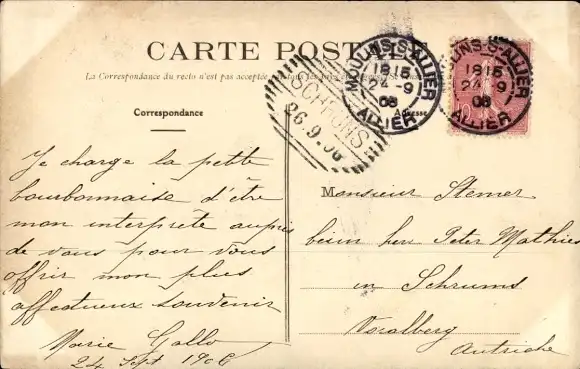 CARTE POSTALE
La Correspondance du recto n'est pas acceptée
Correspondance
Adresse
MOULINS-S-ALLIER
1815
24-9
06
ALLIER
MOULINS-S-ALLIER
1815
24-9
06
ALLIER
SCHRUNS
26.9.06
Je charge la petite
bourbonnaise d'être
mon interprète auprès
de vous pour vous
offrir mon plus
affectueux souvenir
Marie Gallo
24 Sept 1906
Monsieur Stemer
beim hern Peter Mathies
in Schruns
Voralberg
Autriche